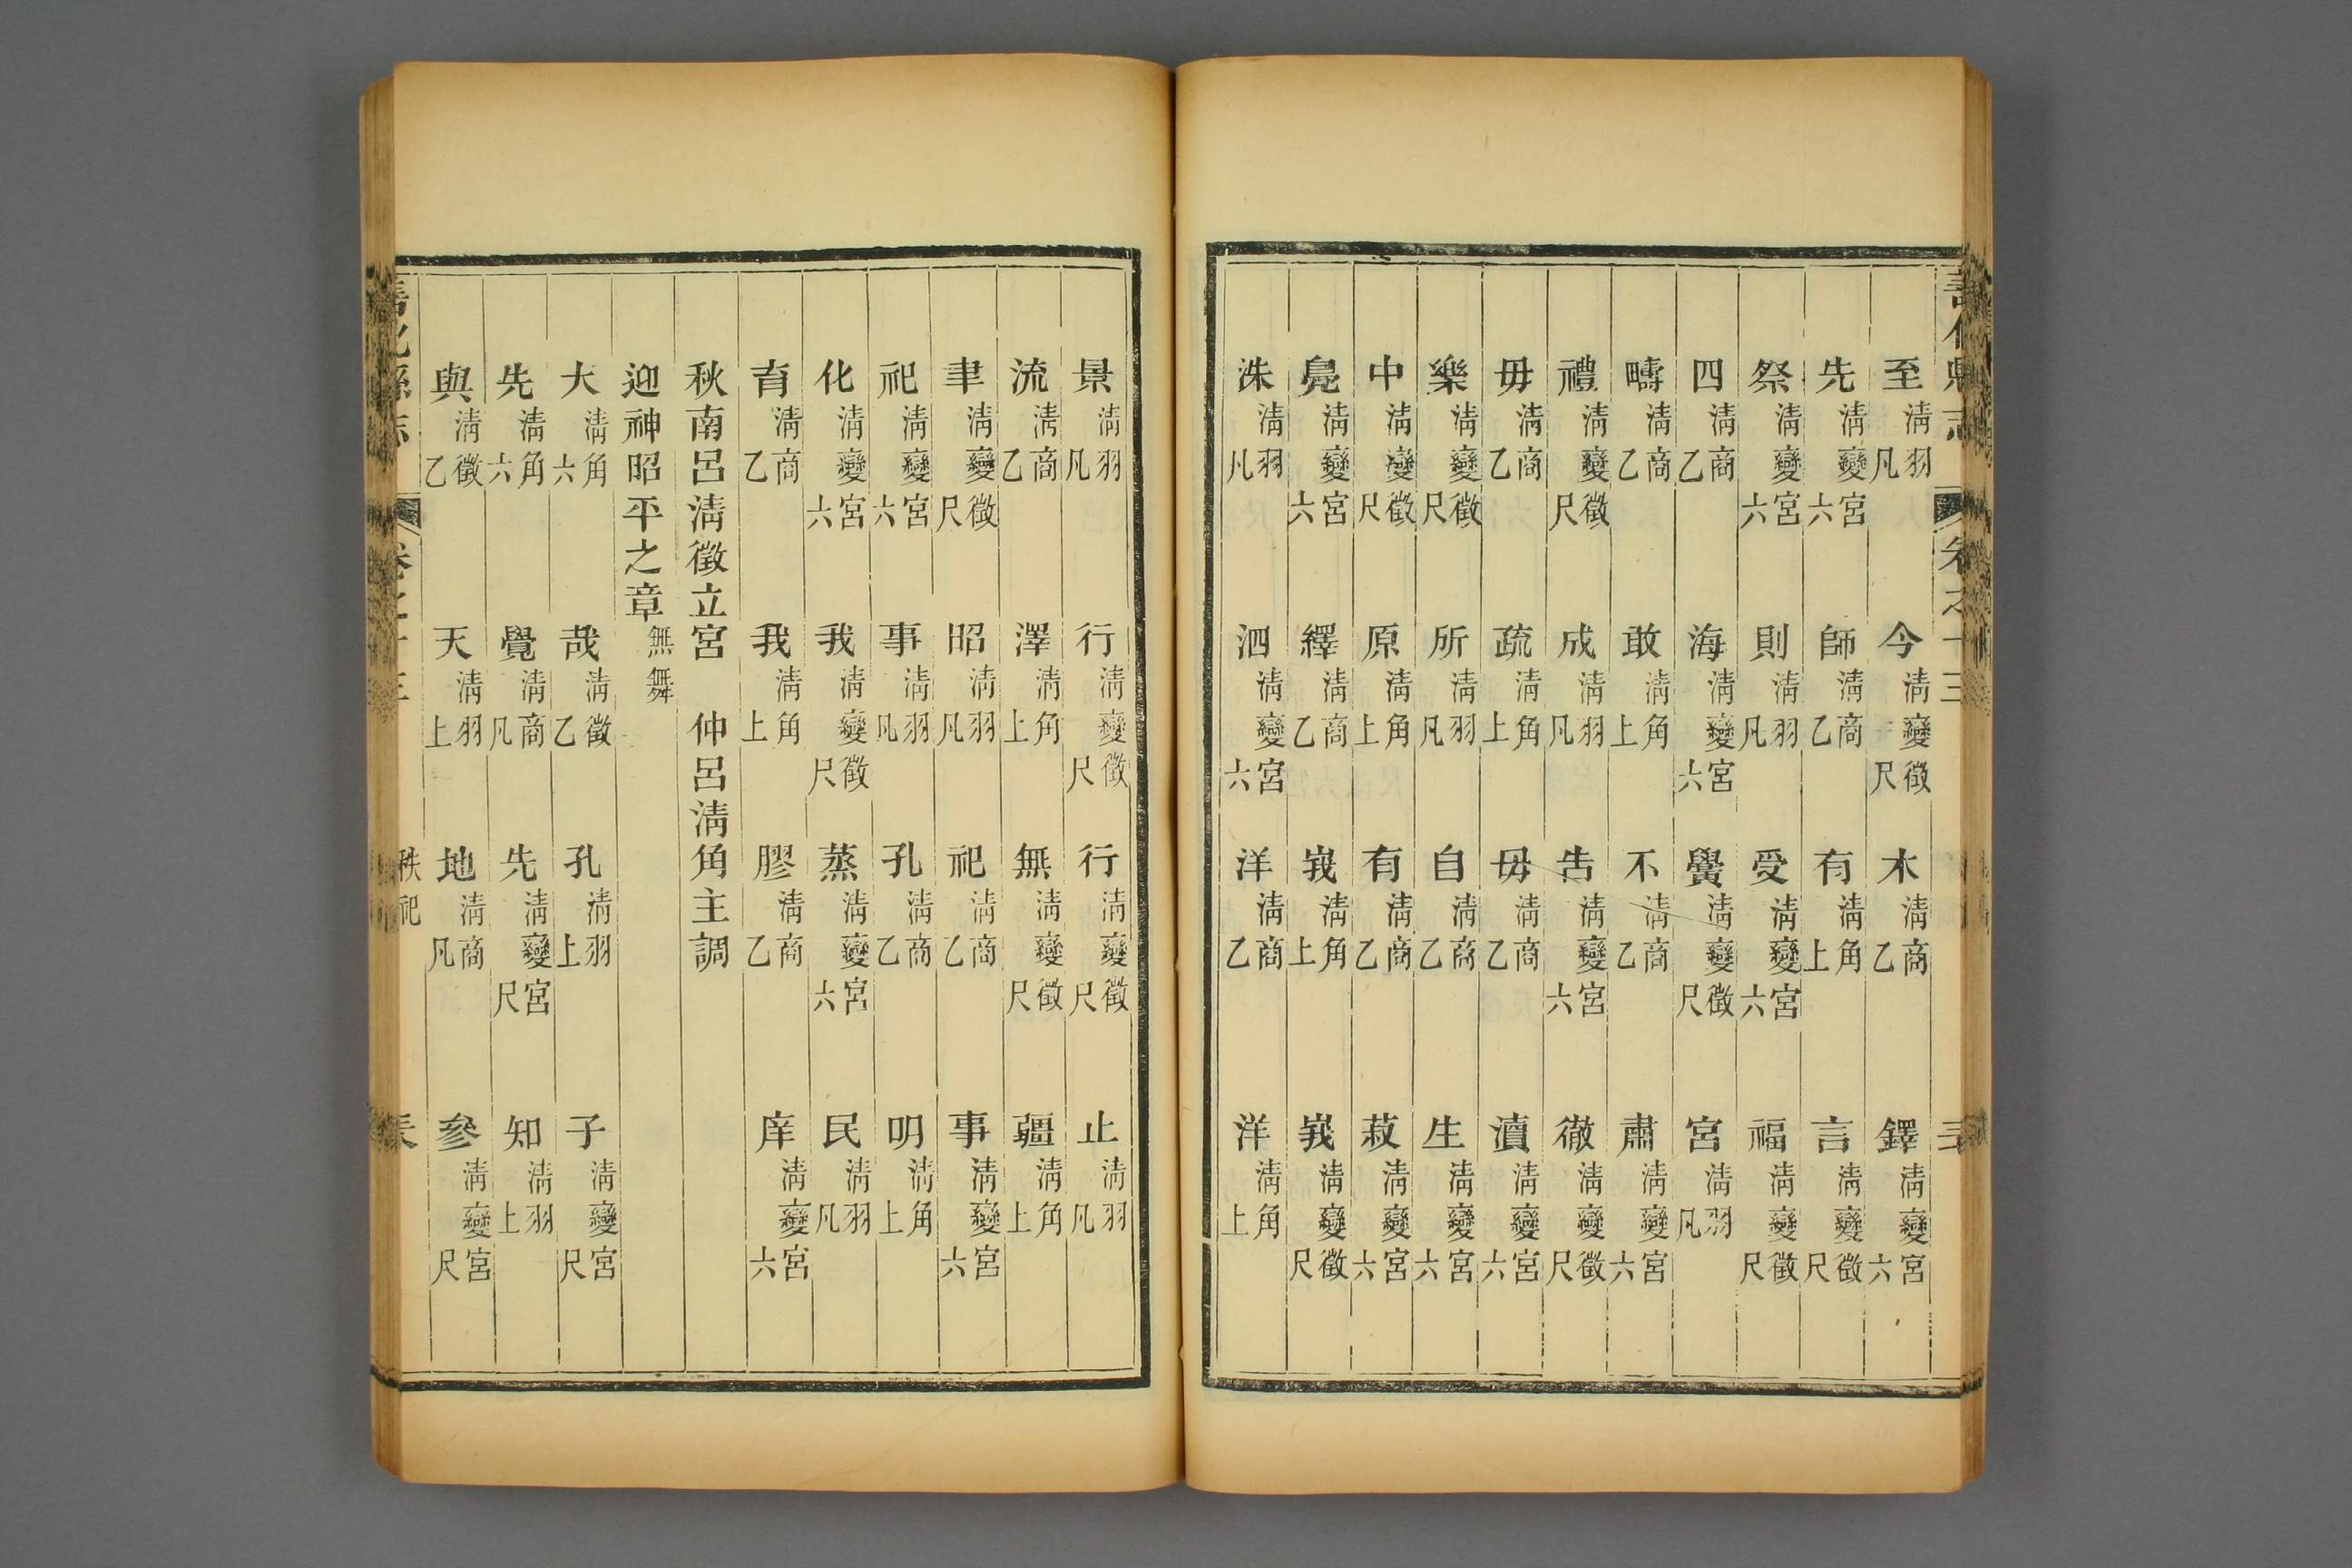 善化縣志 卷之十三
至清羽凡 今清變徵尺 木清商乙 鐸清變宮六
先清變宮六 師清商乙 有清角上 言清變徵尺
祭清變宮六 則清羽凡 受清變宮六 福清變徵尺
四清商乙 海清變宮六 黌清變徵尺 宮清羽凡
疇清商乙 敢清角上 不清商乙 肅清變宮六
禮清變徵尺 成清羽凡 告清變宮六 徹清變徵尺
毋清商乙 疏清角上 毋清商乙 瀆清變宮六
樂清變徵尺 所清羽凡 自清商乙 生清變宮六
中清變徵尺 原清角上 有清商乙 菽清變宮六
鳧清變宮六 繹清商乙 峩清角上 峩清變徵尺
洙清羽凡 泗清變宮六 洋清商乙 洋清角上
景清羽凡 行清變徵尺 行清變徵尺 止清羽凡
流清商乙 澤清角上 無清變徵尺 疆清角上
聿清變徵尺 昭清羽凡 祀清商乙 事清變宮六
祀清變宮六 事清羽凡 孔清商乙 明清角上
化清變宮六 我清變徵尺 蒸清變宮六 民清羽凡
育清商乙 我清角上 膠清商乙 庠清變宮六
秋南呂清徵立宮 仲呂清角主調
迎神昭平之章 無舞
大清角六 哉清徵乙 孔清羽上 子清變宮尺
先清角六 覺清商凡 先清變宮尺 知清羽上
與清徵乙 天清羽上 地清商凡 參清變宮尺
善化縣志 卷之十三 秩祀